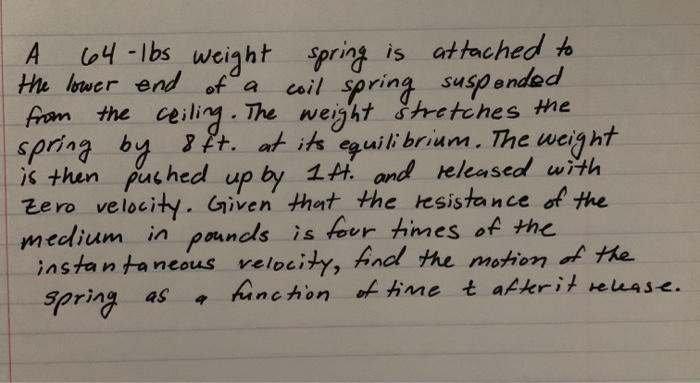 A 64-lbs weight spring is attached to
the lower end of a coil spring suspended
from the ceiling. The weight stretches the
spring by 8 ft. at its equilibrium. The weight
is then pushed up by 1 ft. and released with
zero velocity. Given that the resistance of the
medium in pounds is four times of the
instantaneous velocity, find the motion of the
spring as a function of time t after it release.